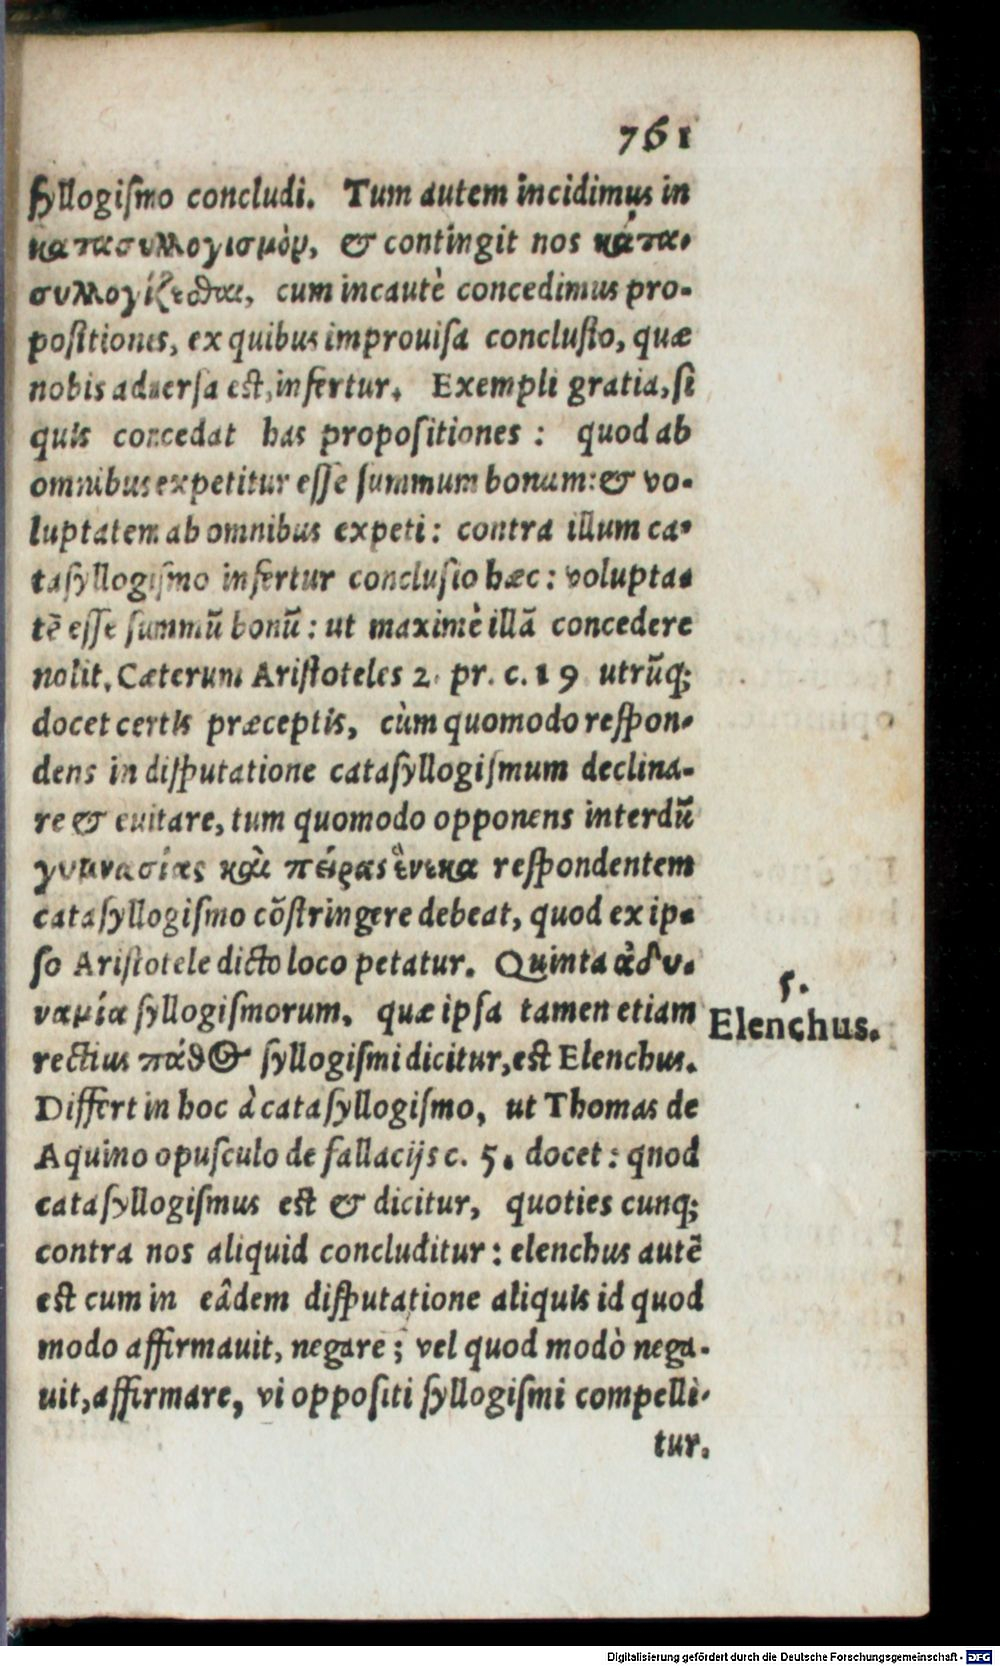 761
ſyllogiſmo concludi. Tum autem incidimus in
κατασυλλογισμὸν, & contingit nos κατα-
συλλογίζεσθαι, cum incautè concedimus pro-
poſitiones, ex quibus improuiſa concluſio, quæ
nobis aduerſa eſt, infertur. Exempli gratia, ſi
quis concedat has propoſitiones : quod ab
omnibus expetitur eſſe ſummum bonum: & vo-
luptatem ab omnibus expeti: contra illum ca-
taſyllogiſmo infertur concluſio hæc: volupta-
tẽ eſſe ſummũ bonũ: ut maximè illã concedere
nolit. Cæterum Ariſtoteles 2. pr. c. 19 utrũq;
docet certis præceptis, cùm quomodo reſpon-
dens in diſputatione cataſyllogiſmum declina-
re & euitare, tum quomodo opponens interdũ
γυμνασίας καὶ πείρας ἕνεκα reſpondentem
cataſyllogiſmo cõſtringere debeat, quod ex ip-
ſo Ariſtotele dicto loco petatur. Quinta ἀδυ-
ναμία ſyllogiſmorum, quæ ipſa tamen etiam
rectius πάθος ſyllogiſmi dicitur, eſt Elenchus.
Differt in hoc à cataſyllogiſmo, ut Thomas de
Aquino opuſculo de fallacijs c. 5. docet: quod
cataſyllogiſmus eſt & dicitur, quoties cunq;
contra nos aliquid concluditur: elenchus autẽ
eſt cum in eâdem diſputatione aliquis id quod
modo affirmauit, negare; vel quod modò nega-
uit, affirmare, vi oppoſiti ſyllogiſmi compelli-
tur.
5.
Elenchus.
Digitalisierung gefördert durch die Deutsche Forschungsgemeinschaft - DFG